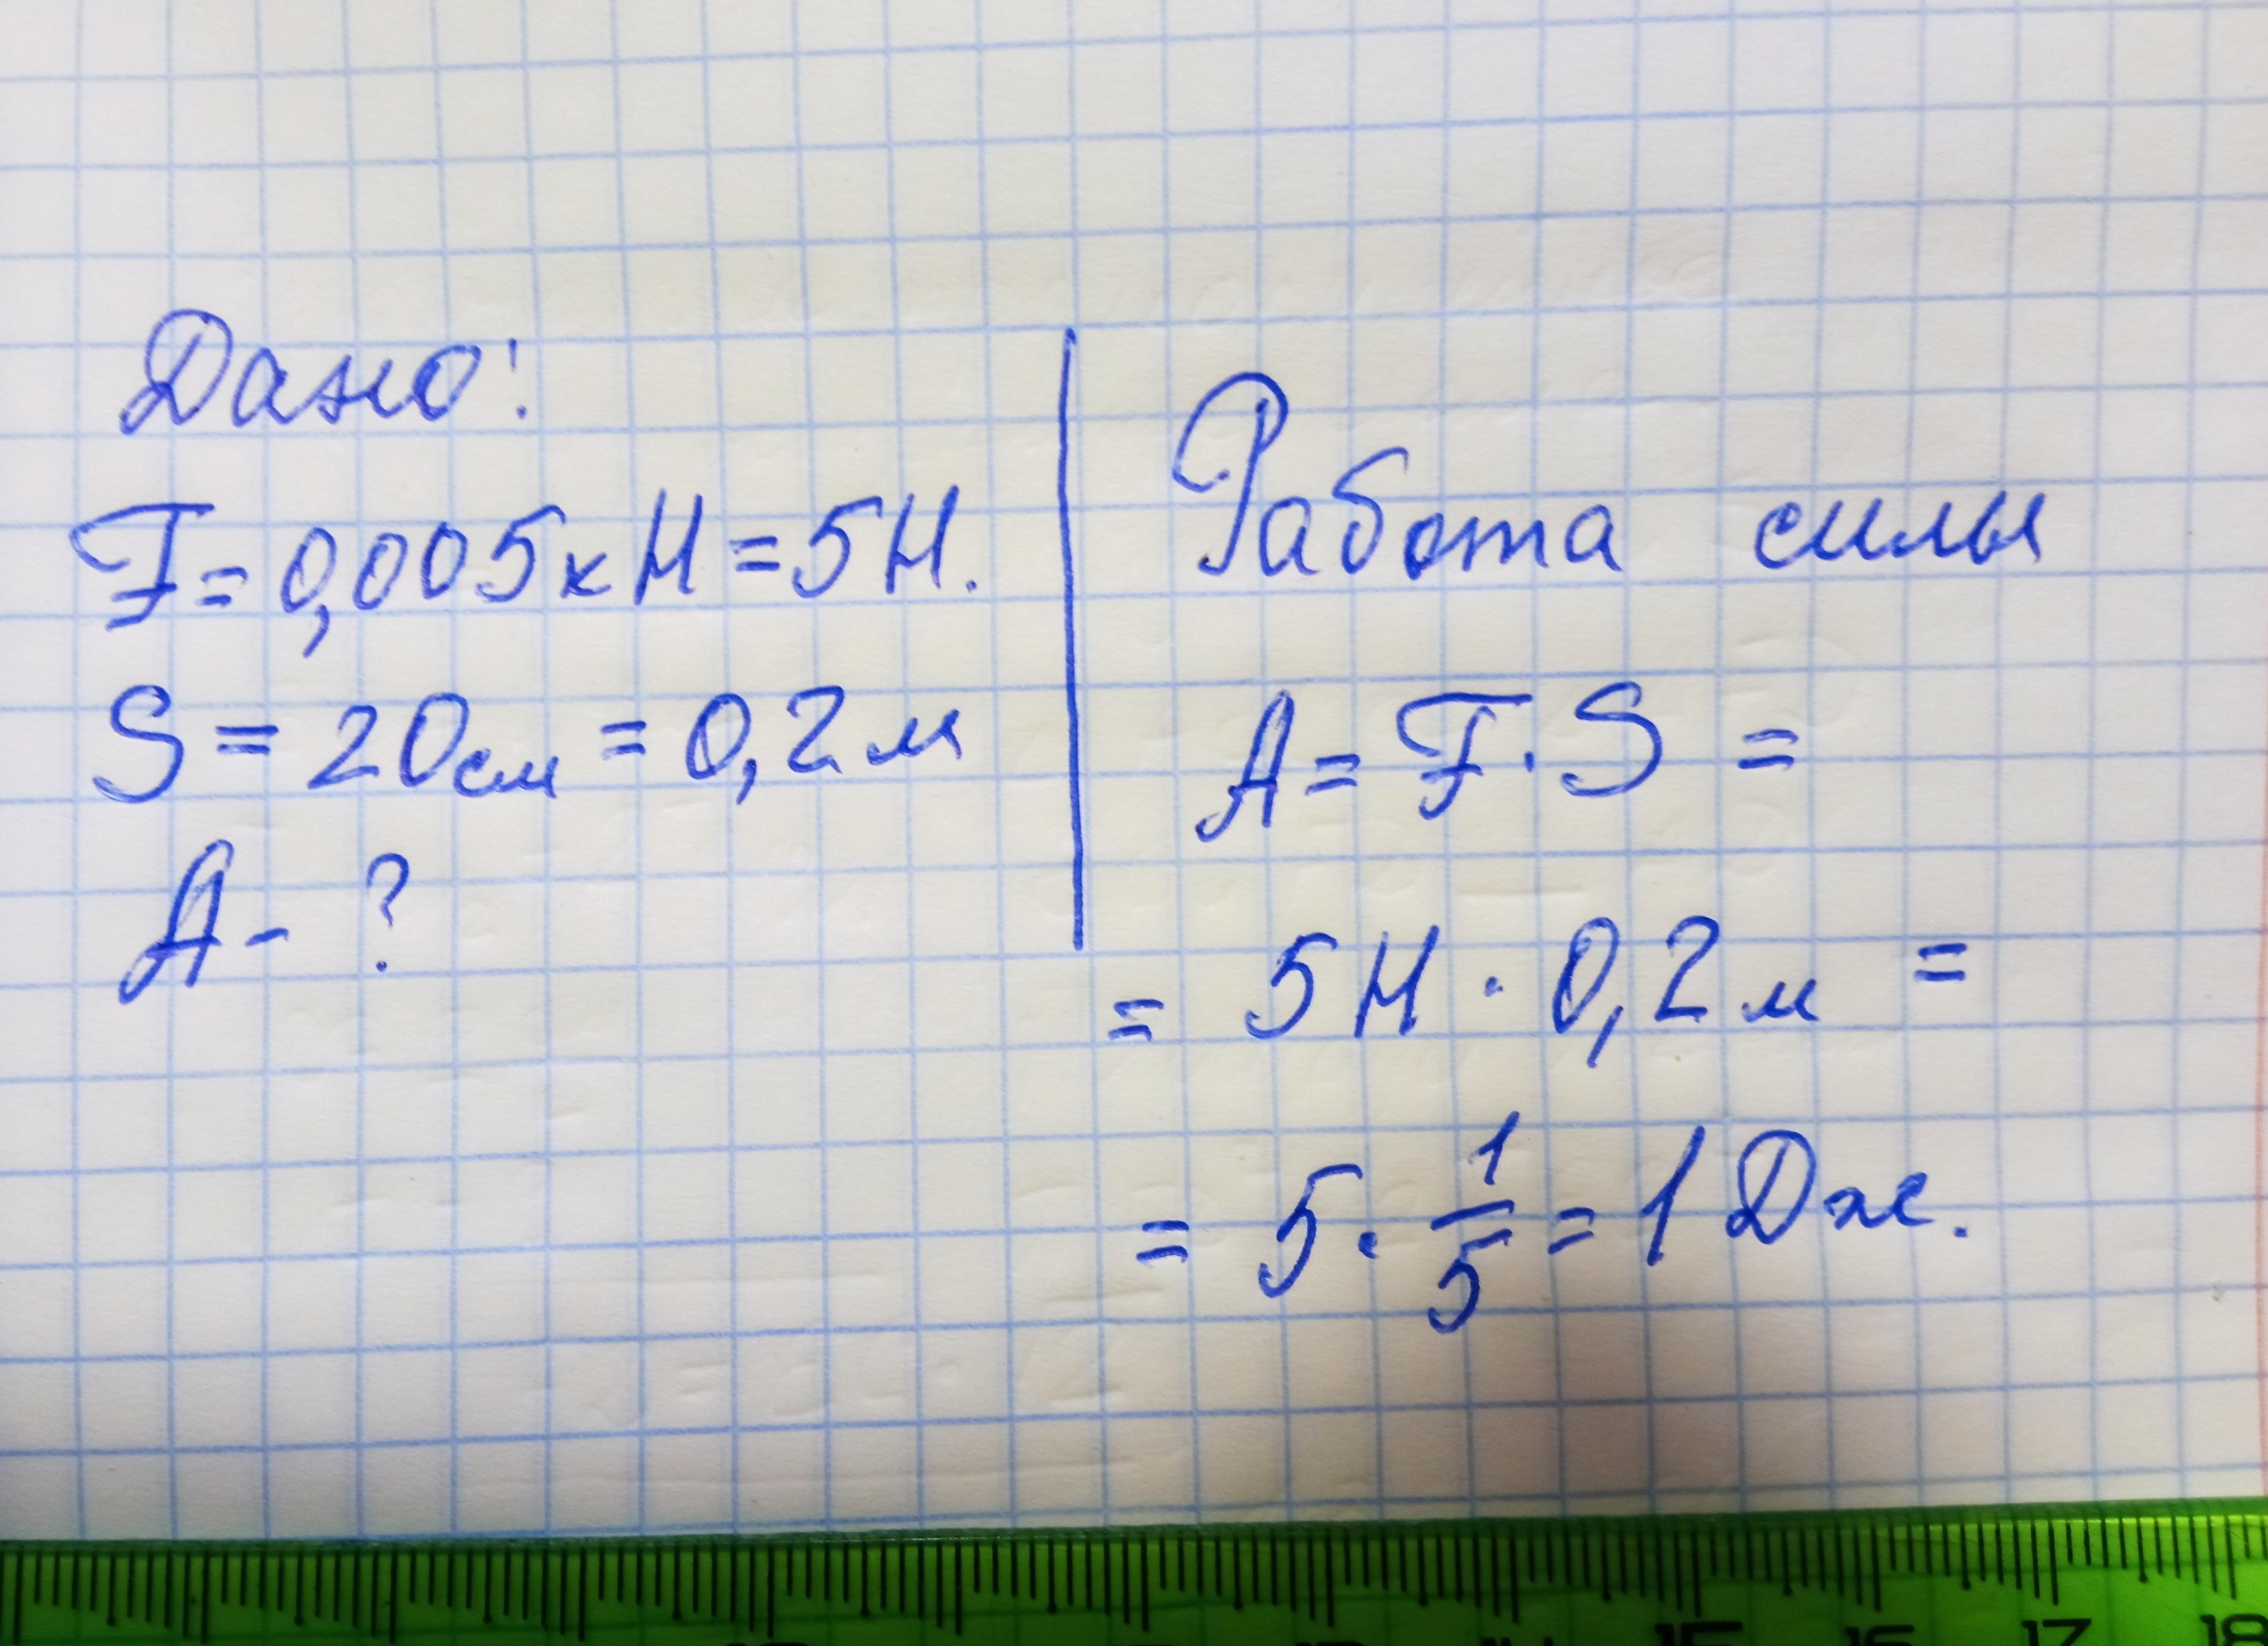 Дано:
F = 0,005 кН = 5Н.
S = 20 см = 0,2 м
А - ?
Работа силы
А = F · S =
= 5 Н · 0,2 м =
= 5 · 1/5 = 1 Дж.
15 16 17 18